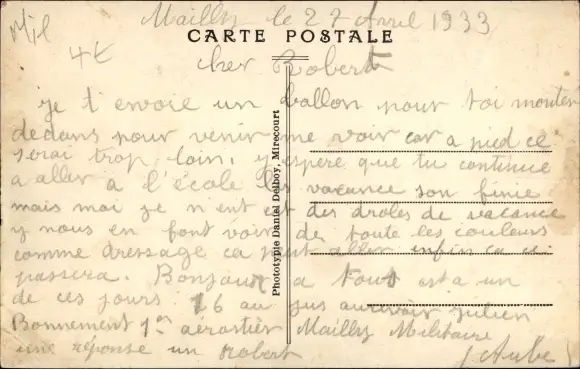 Mailly le 27 Avril 1933
Mil
4E
CARTE POSTALE
cher Robert
je t envoie un ballon pour toi monter
dedans pour venir me voir car a pied ce
serai trop loin, j espere que tu continue
a aller a l'école les vacance son finie
mais moi je n'ent est des droles de vacance
y nous en font voir de toute les couleurs
comme dressage ca peut aller enfin ca ce
passera. Bonjour a tous est a un
de ces jours 16 au jus aurevoir julien
Bonnement 1er aérostier Mailly Militaire
une réponse un Robert (Aube)
Phototypie Daniel Delboy, Mirecourt